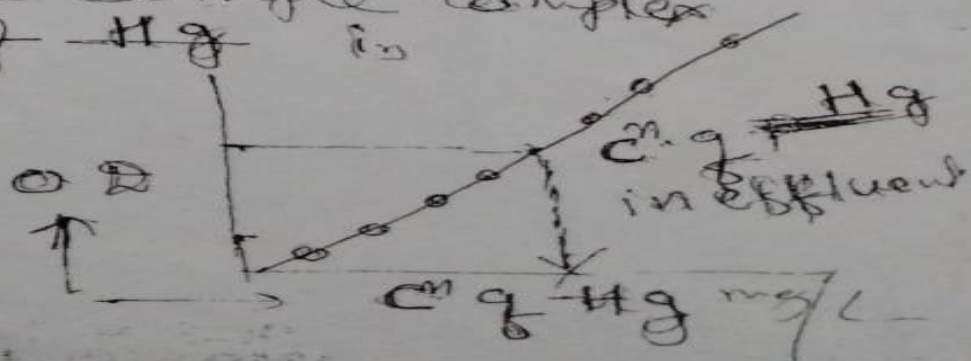 complex
Hg in
OD
Cⁿ. of Hg
in Effluent
Cⁿ of Hg mg/L